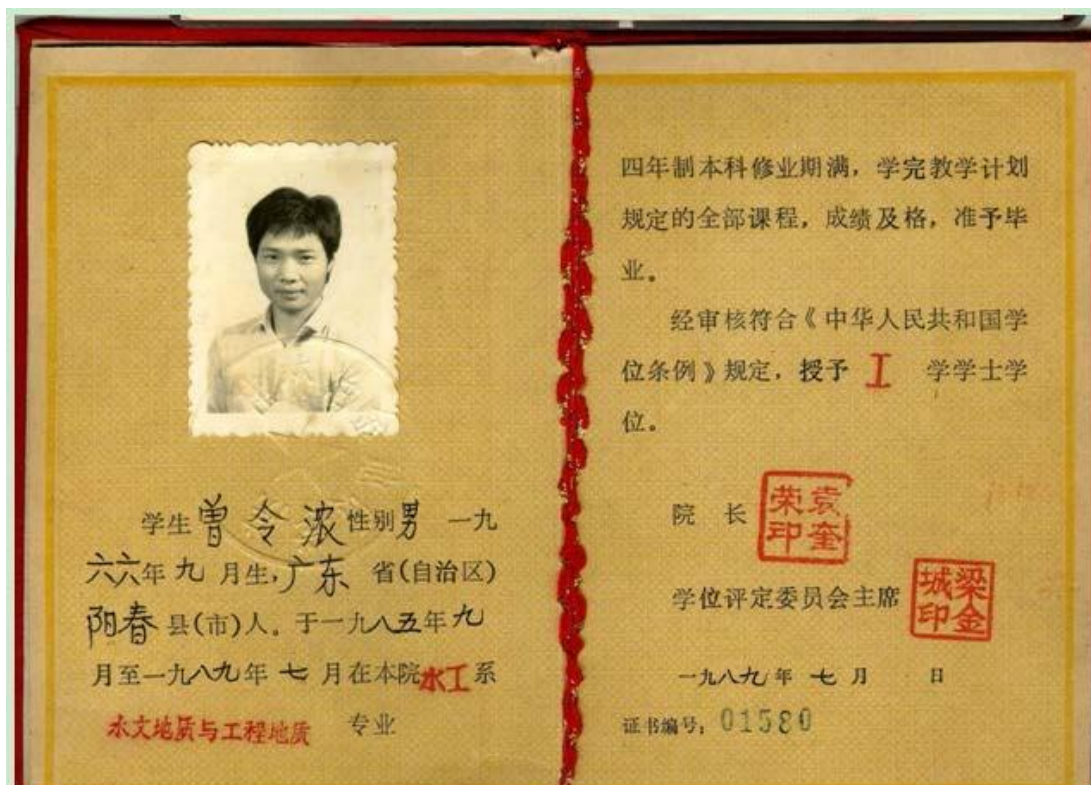 学生曾令浓性别男 一九
六六年九月生,广东省(自治区)
阳春县(市)人。于一九八五年九
月至一九八九年七月在本院水工系
水文地质与工程地质 专业
四年制本科修业期满，学完教学计划
规定的全部课程，成绩及格，准予毕
业。
经审核符合《中华人民共和国学
位条例》规定，授予 工 学学士学
位。
院 长 袁奎荣印
学位评定委员会主席 梁金城印
一九八九年七月 日
证书编号：01580